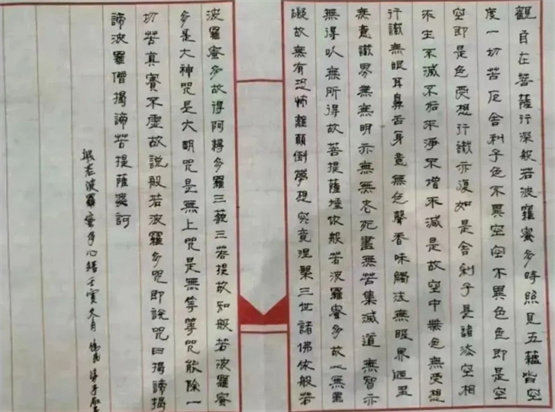 觀自在菩薩行深般若波羅蜜多時照見五蘊皆空
度一切苦厄舍利子色不異空空不異色色即是空
空即是色受想行識亦復如是舍利子是諸法空相
不生不滅不垢不淨不增不減是故空中無色無受想
行識無眼耳鼻舌身意無色聲香味觸法無眼界迺至
無意識界無無明亦無無老死盡無苦集滅道無智亦
無得以無所得故菩提薩埵依般若波羅蜜多故心無罣
礙故無有恐怖離顛倒夢想究竟涅槃三世諸佛依般若
波羅蜜多故得阿耨多羅三藐三菩提故知般若波羅蜜
多是大神咒是大明咒是無上咒是無等等咒能除一
切苦真實不虛故說般若波羅蜜多咒即說咒曰揭諦揭
諦波羅僧揭諦菩提薩婆訶
般若波羅蜜多心經壬寅冬月